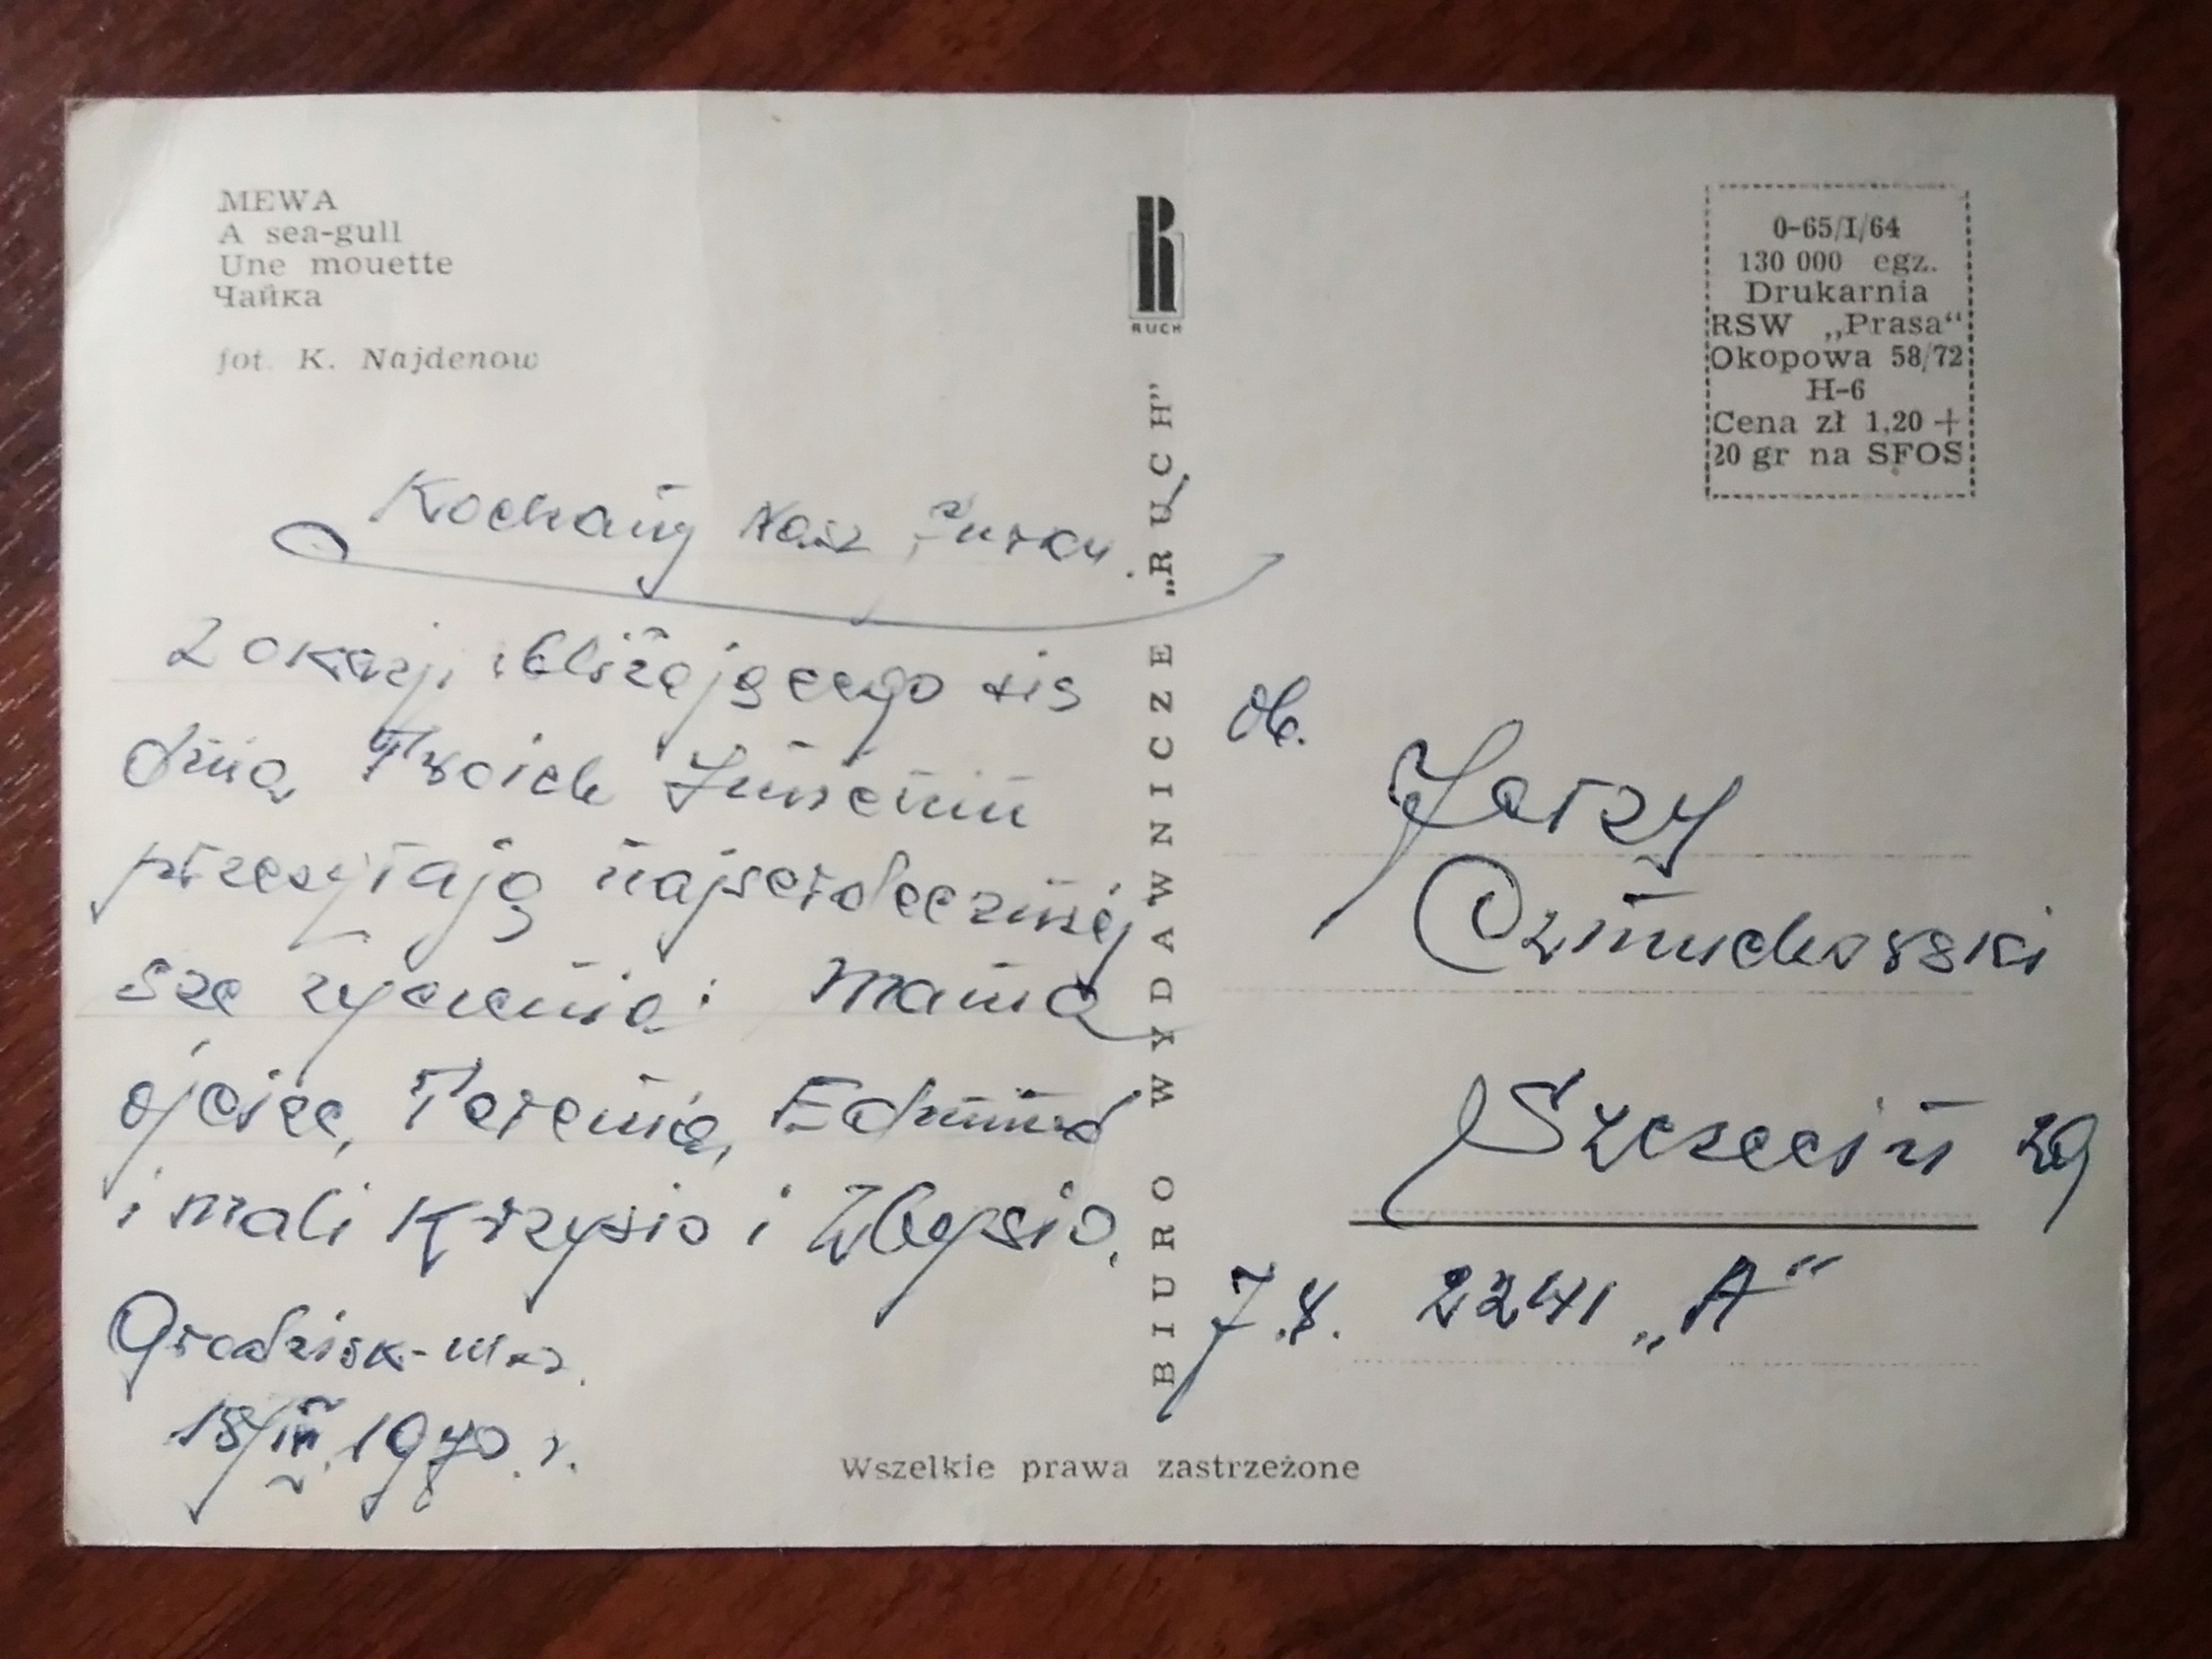 MEWA
A sea-gull
Une mouette
Чайка
fot. K. Najdenow
Kochany Nasz Jurku.
Z okazji zbliżającego się
dnia Twoich Imienin
przesyłają najserdeczniej
sze życzenia: Mama
ojciec, Terenia, Edmund
i mali Krzysio i Zbysio.
Grodzisk-Maz.
18/IV. 1970. r.
RUCH
BIURO WYDAWNICZE „RUCH”
Wszelkie prawa zastrzeżone
0-65/I/64
130 000 egz.
Drukarnia
RSW „Prasa“
Okopowa 58/72
H-6
Cena zł 1,20 +
20 gr na SFOS
Ob.
Jerzy
Czmuchowski
Szczecin 29
2241 „A“